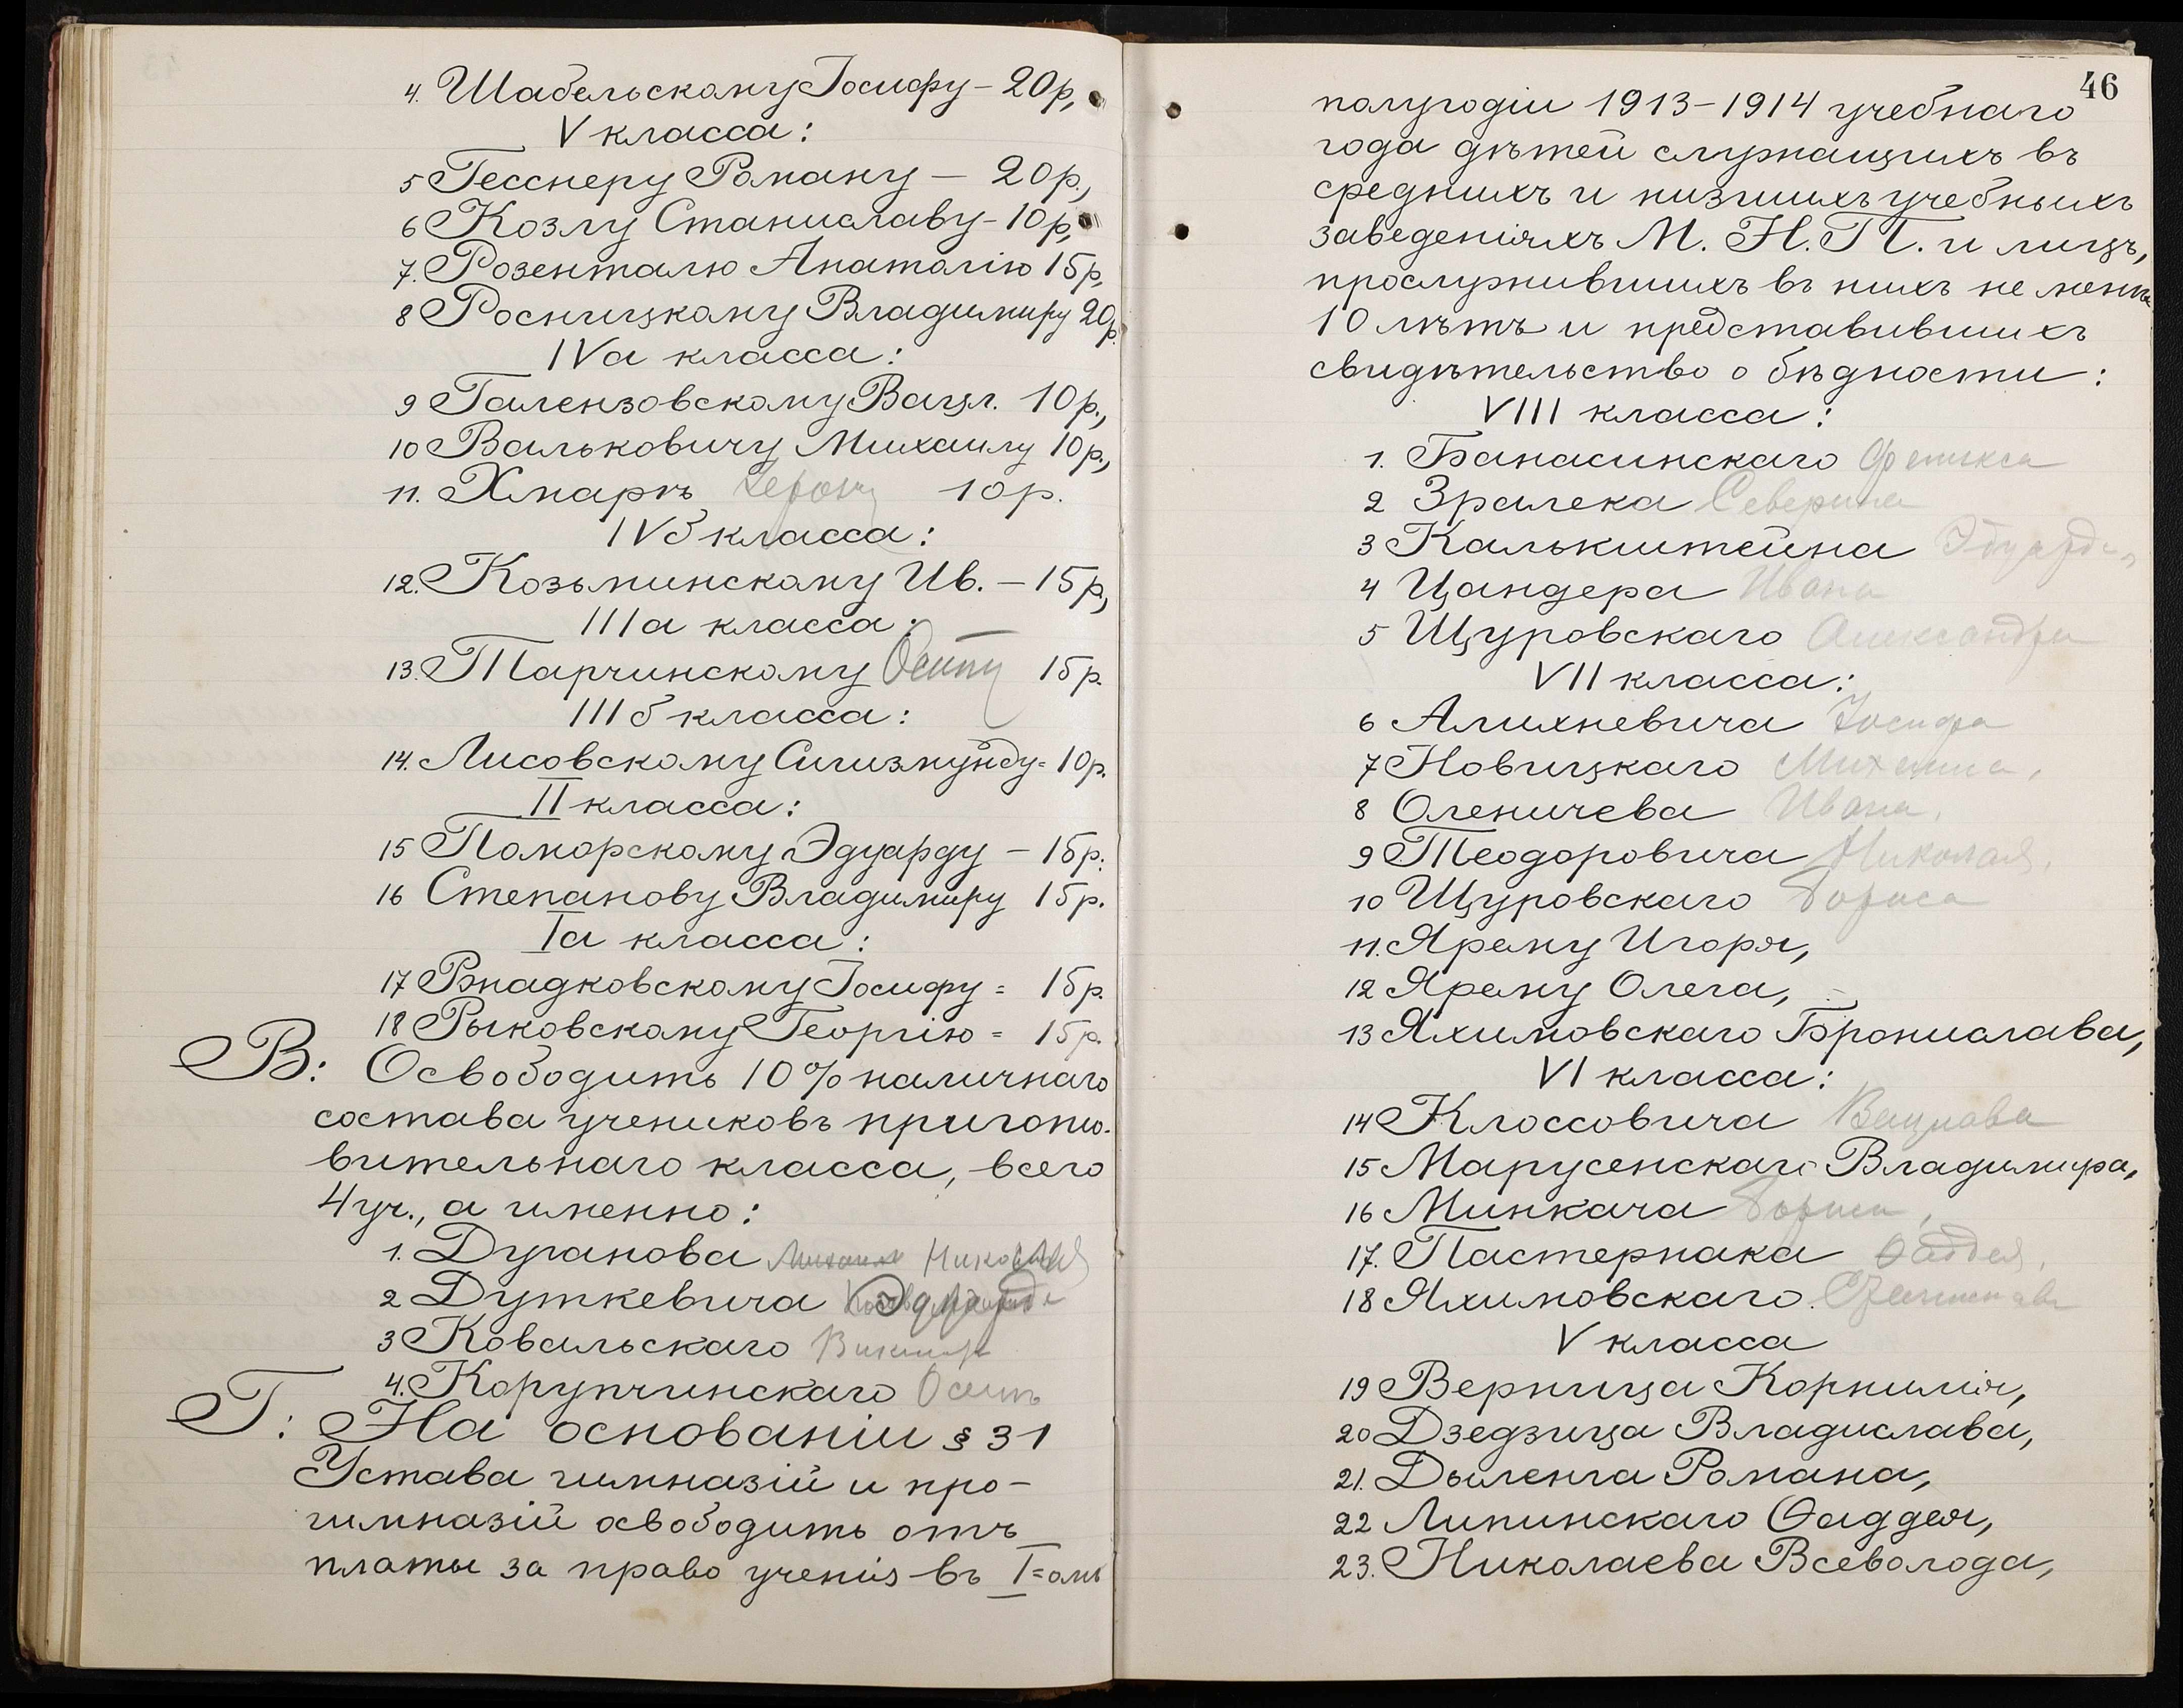 4. Шабельскому Іосифу – 20 р.,
V класса:
5 Гесснеру Роману — 20 р.,
6 Козлу Станиславу – 10 р.,
7. Розенталю Анатолію 15 р.,
8 Росницкому Владимиру 20 р.
IVа класса:
9 Галензовскому Вацл. 10 р.,
10 Вальковичу Михаилу 10 р.,
11. Хмарѣ 10 р.
IVб класса:
12. Козьминскому Ив. – 15 р.,
IIIа класса:
13. Тарчинскому Осипу 15 р.
IIIб класса:
14. Лисовскому Сигизмунду = 10 р.
II класса:
15 Поморскому Эдуарду – 15 р.
16 Степанову Владимиру 15 р.
Iа класса:
17 Ржадковскому Іосифу = 15 р.
18 Рыковскому Георгію = 15 р.
В: Освободить 10% наличнаго
состава учениковъ пригото-
вительнаго класса, всего
4 уч., а именно:
1. Дуганова Николая
2 Дуткевича
3 Ковальскаго Виктора
4. Корупчинскаго Осипа
Г: На основаніи § 31
Устава гимназій и про-
гимназій освободить отъ
платы за право ученія въ I=омъ
46
полугодіи 1913–1914 учебнаго
года дѣтей служащихъ въ
среднихъ и низшихъ учебныхъ
заведеніяхъ М. Н. П. и лицъ,
прослужившихъ въ нихъ не менѣе
10 лѣтъ и представившихъ
свидѣтельство о бѣдности:
VIII класса:
1. Банасинскаго Феликса
2 Зралека Северина
3 Калькштейна Эдуарда
4 Цандера Ивана
5 Щуровскаго Александра
VII класса:
6 Алихневича Іосифа
7 Новицкаго Михаила,
8 Оленичева Ивана,
9 Теодоровича Николая,
10 Щуровскаго Бориса
11. Ярему Игоря,
12 Ярему Олега,
13 Яхимовскаго Бронислава,
VI класса:
14 Клоссовича Вацлава
15 Марусенскаго Владимира,
16 Минкача Бориса,
17. Пастернака Фаддея,
18 Яхимовскаго.
V класса
19 Верница Корнилія,
20 Дзедзица Владислава,
21. Дыленга Романа,
22 Липинскаго Ѳаддея,
23. Николаева Всеволода,